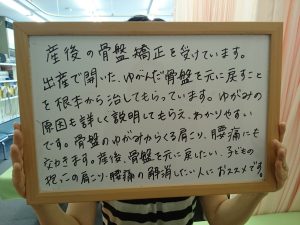 産後の骨盤矯正を受けています。
出産で開いた、ゆがんだ骨盤を元に戻すこと
を根本から治してもらっています。ゆがみの
原因も詳しく説明してもらえ、わかりやすい
です。骨盤のゆがみからくる肩こり、腰痛にも
なわきます。産後、骨盤を元に戻したい、子どもの
抱っこの肩こり・腰痛の解消したい人におススメです。